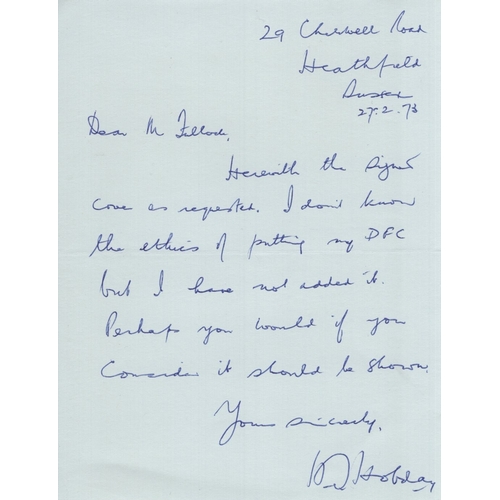 29 Cherwell Road
Heathfield
Sussex
27.2.73
Dear Mr
Herewith the signed
cover as requested. I don't know
the ethics of putting my DFC
but I have not added it.
Perhaps you would if you
Consider it should be shown.
Yours sincerely,
Hobday